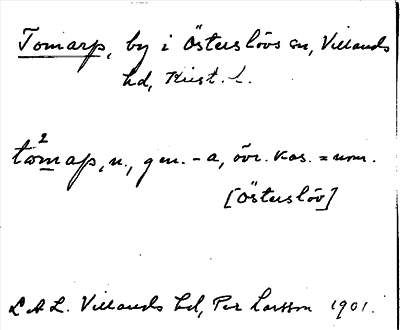 Tomarp, by i Österslövs sn, Villands
hd, Krist. L.
2
tomap, n., gen. -a, övr. kas. = nom.
[Österslöv]
L A L. Villands hd, Per Larsson 1901.